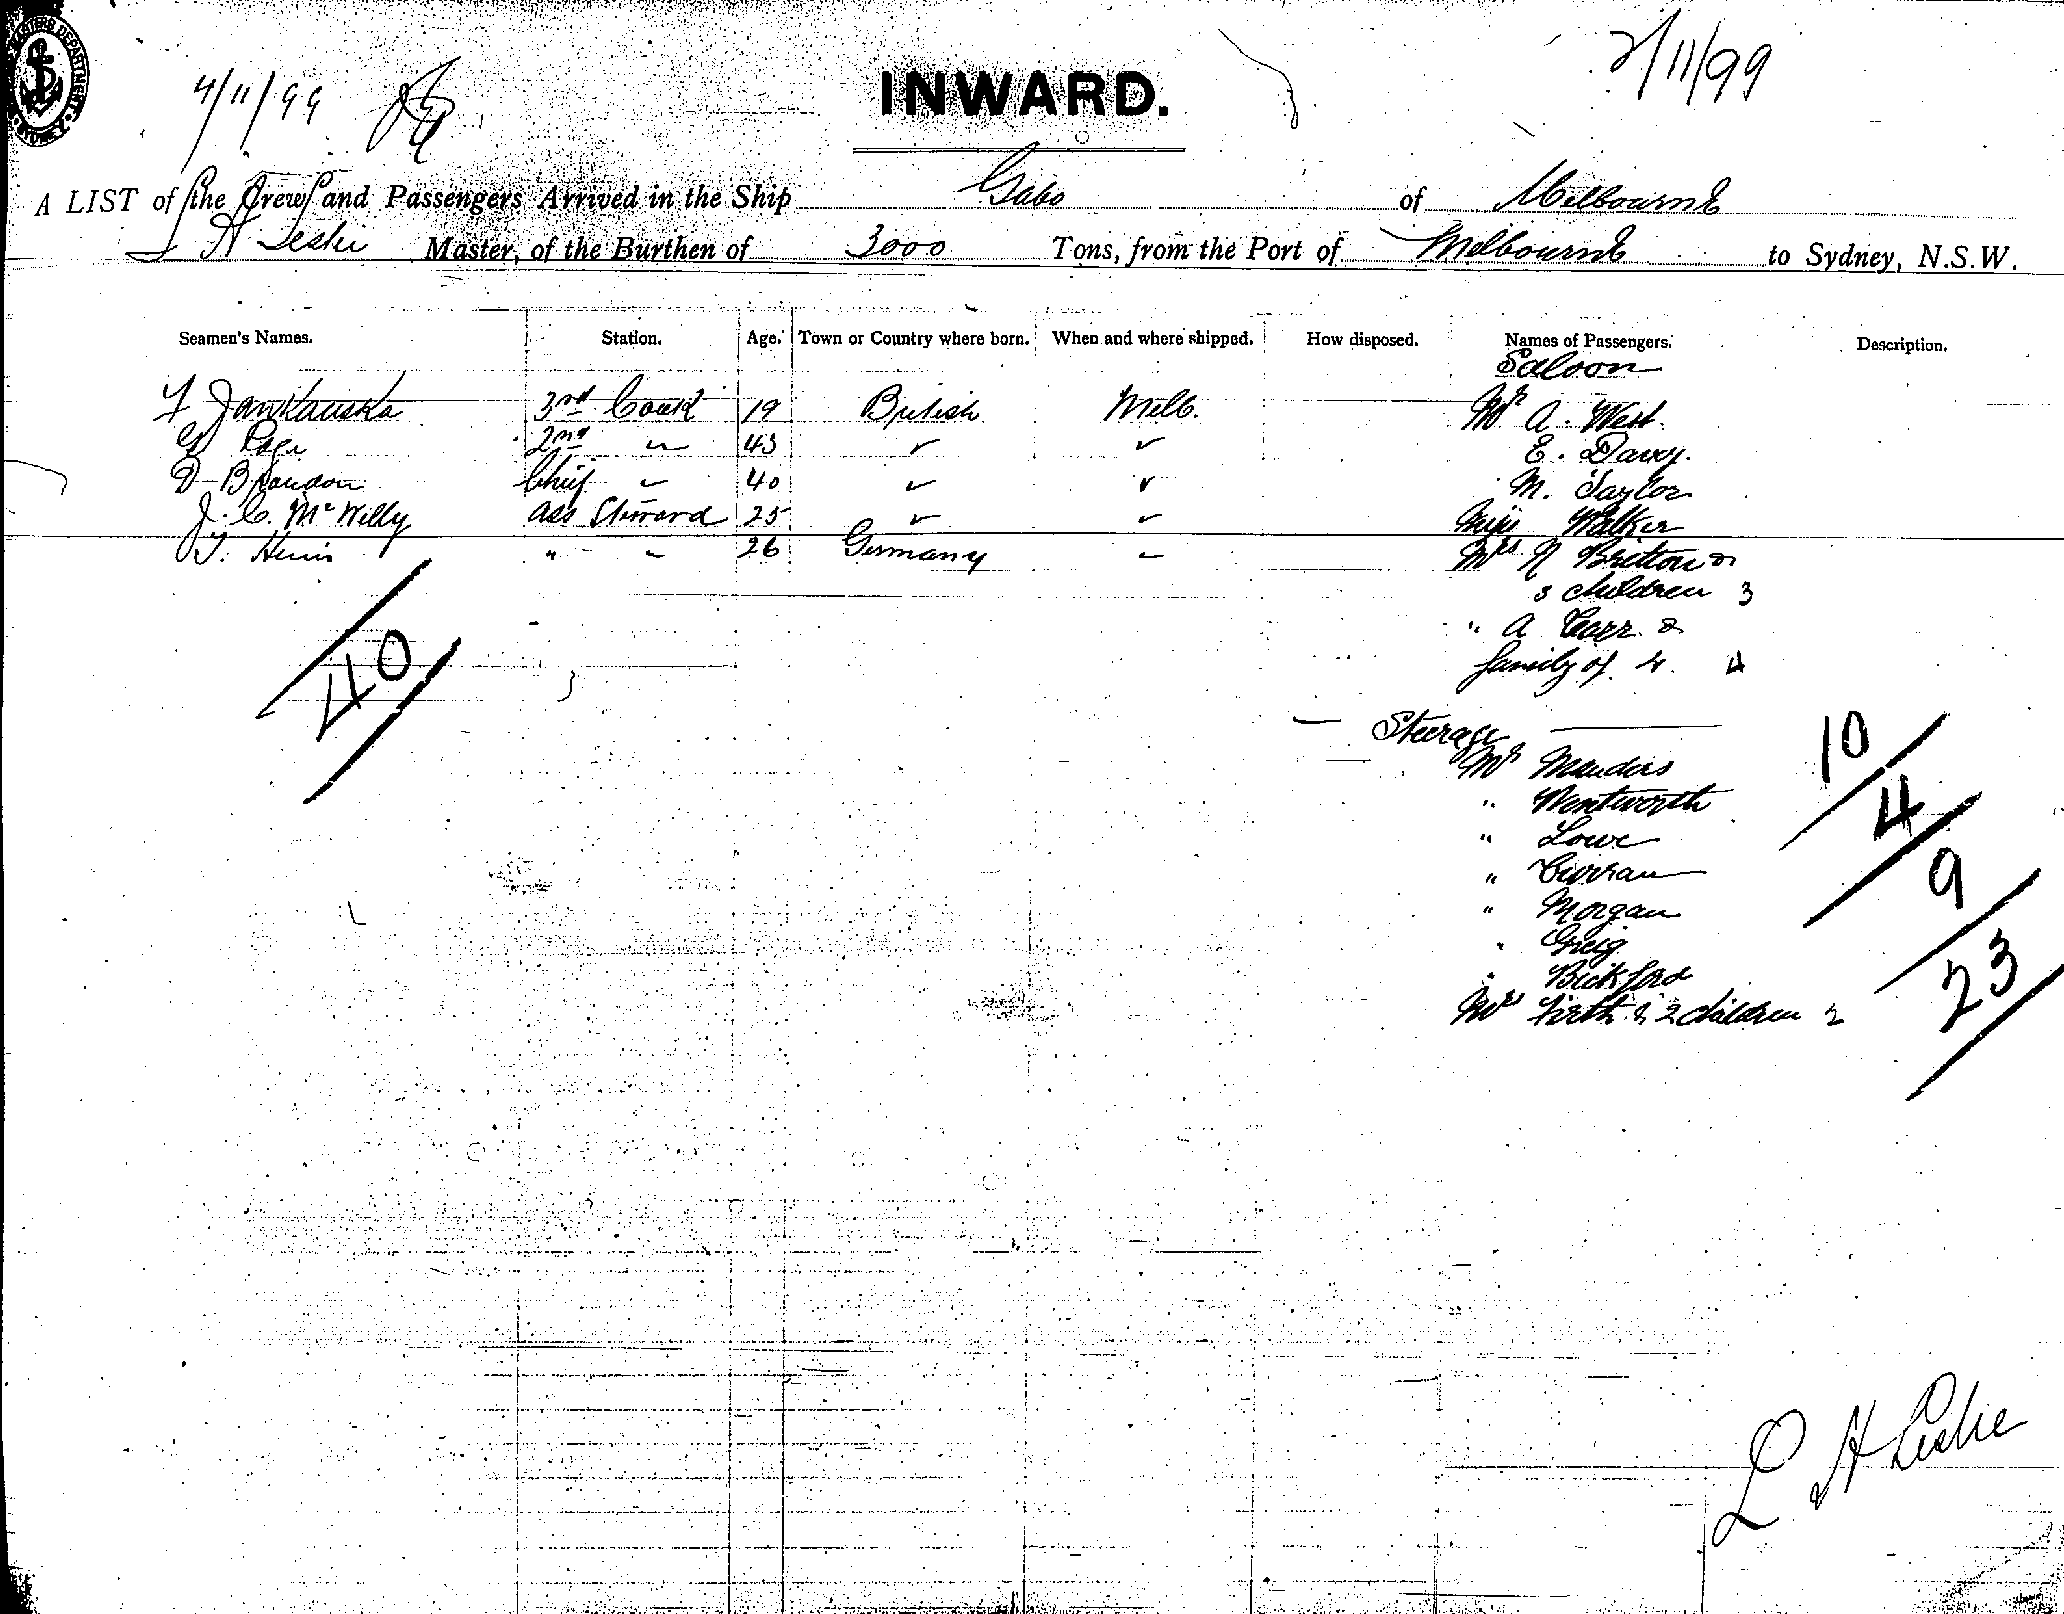 4/11/99
INWARD.
2/11/99
A LIST of the Crew and Passengers Arrived in the Ship Gabo of Melbourne
L H Leslie Master, of the Burthen of 3000 Tons, from the Port of Melbourne to Sydney, N.S.W.
Seamen's Names. Station. Age. Town or Country where born. When and where shipped. How disposed. Names of Passengers. Description.
Saloon
3rd Cook 19 British Melb. Mr A. West
2nd " 43 " " E. Davy.
D Brandon Chief " 40 " " M. Taylor
J. C. McWilly Ass Steward 25 " " Miss Walker
T. " " 26 Germany " Mrs N Bretton &
3 children 3
" A Carr &
family of 4. 4
40
Steerage
Mr Manders
" Wentworth
" Lowe
" Curran
" Morgan
" Greig
" Bickford
Mrs Firth & 2 children 2
10
4
9
23
L H Leslie